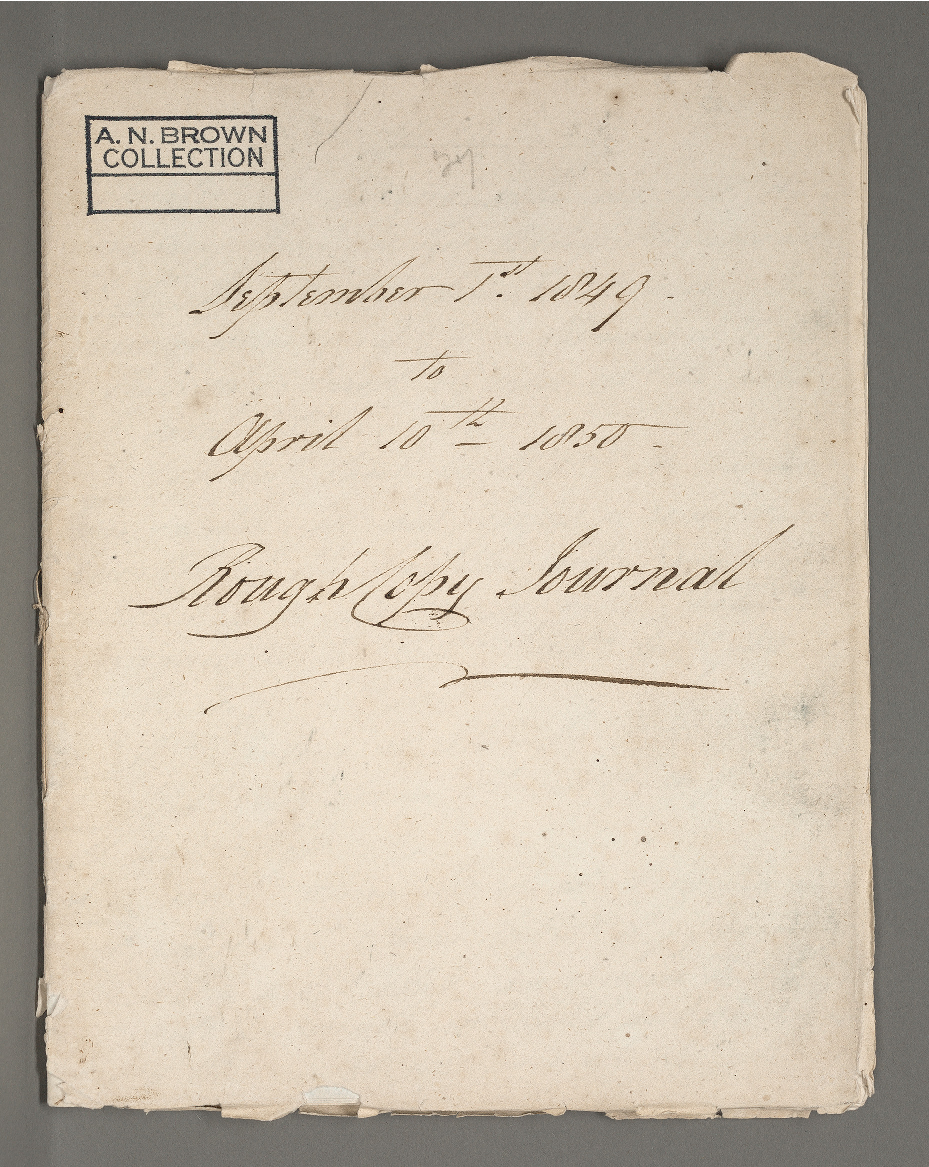 A. N. BROWN
COLLECTION
September 1st. 1849
to
April 10th 1850
Rough Copy Journal